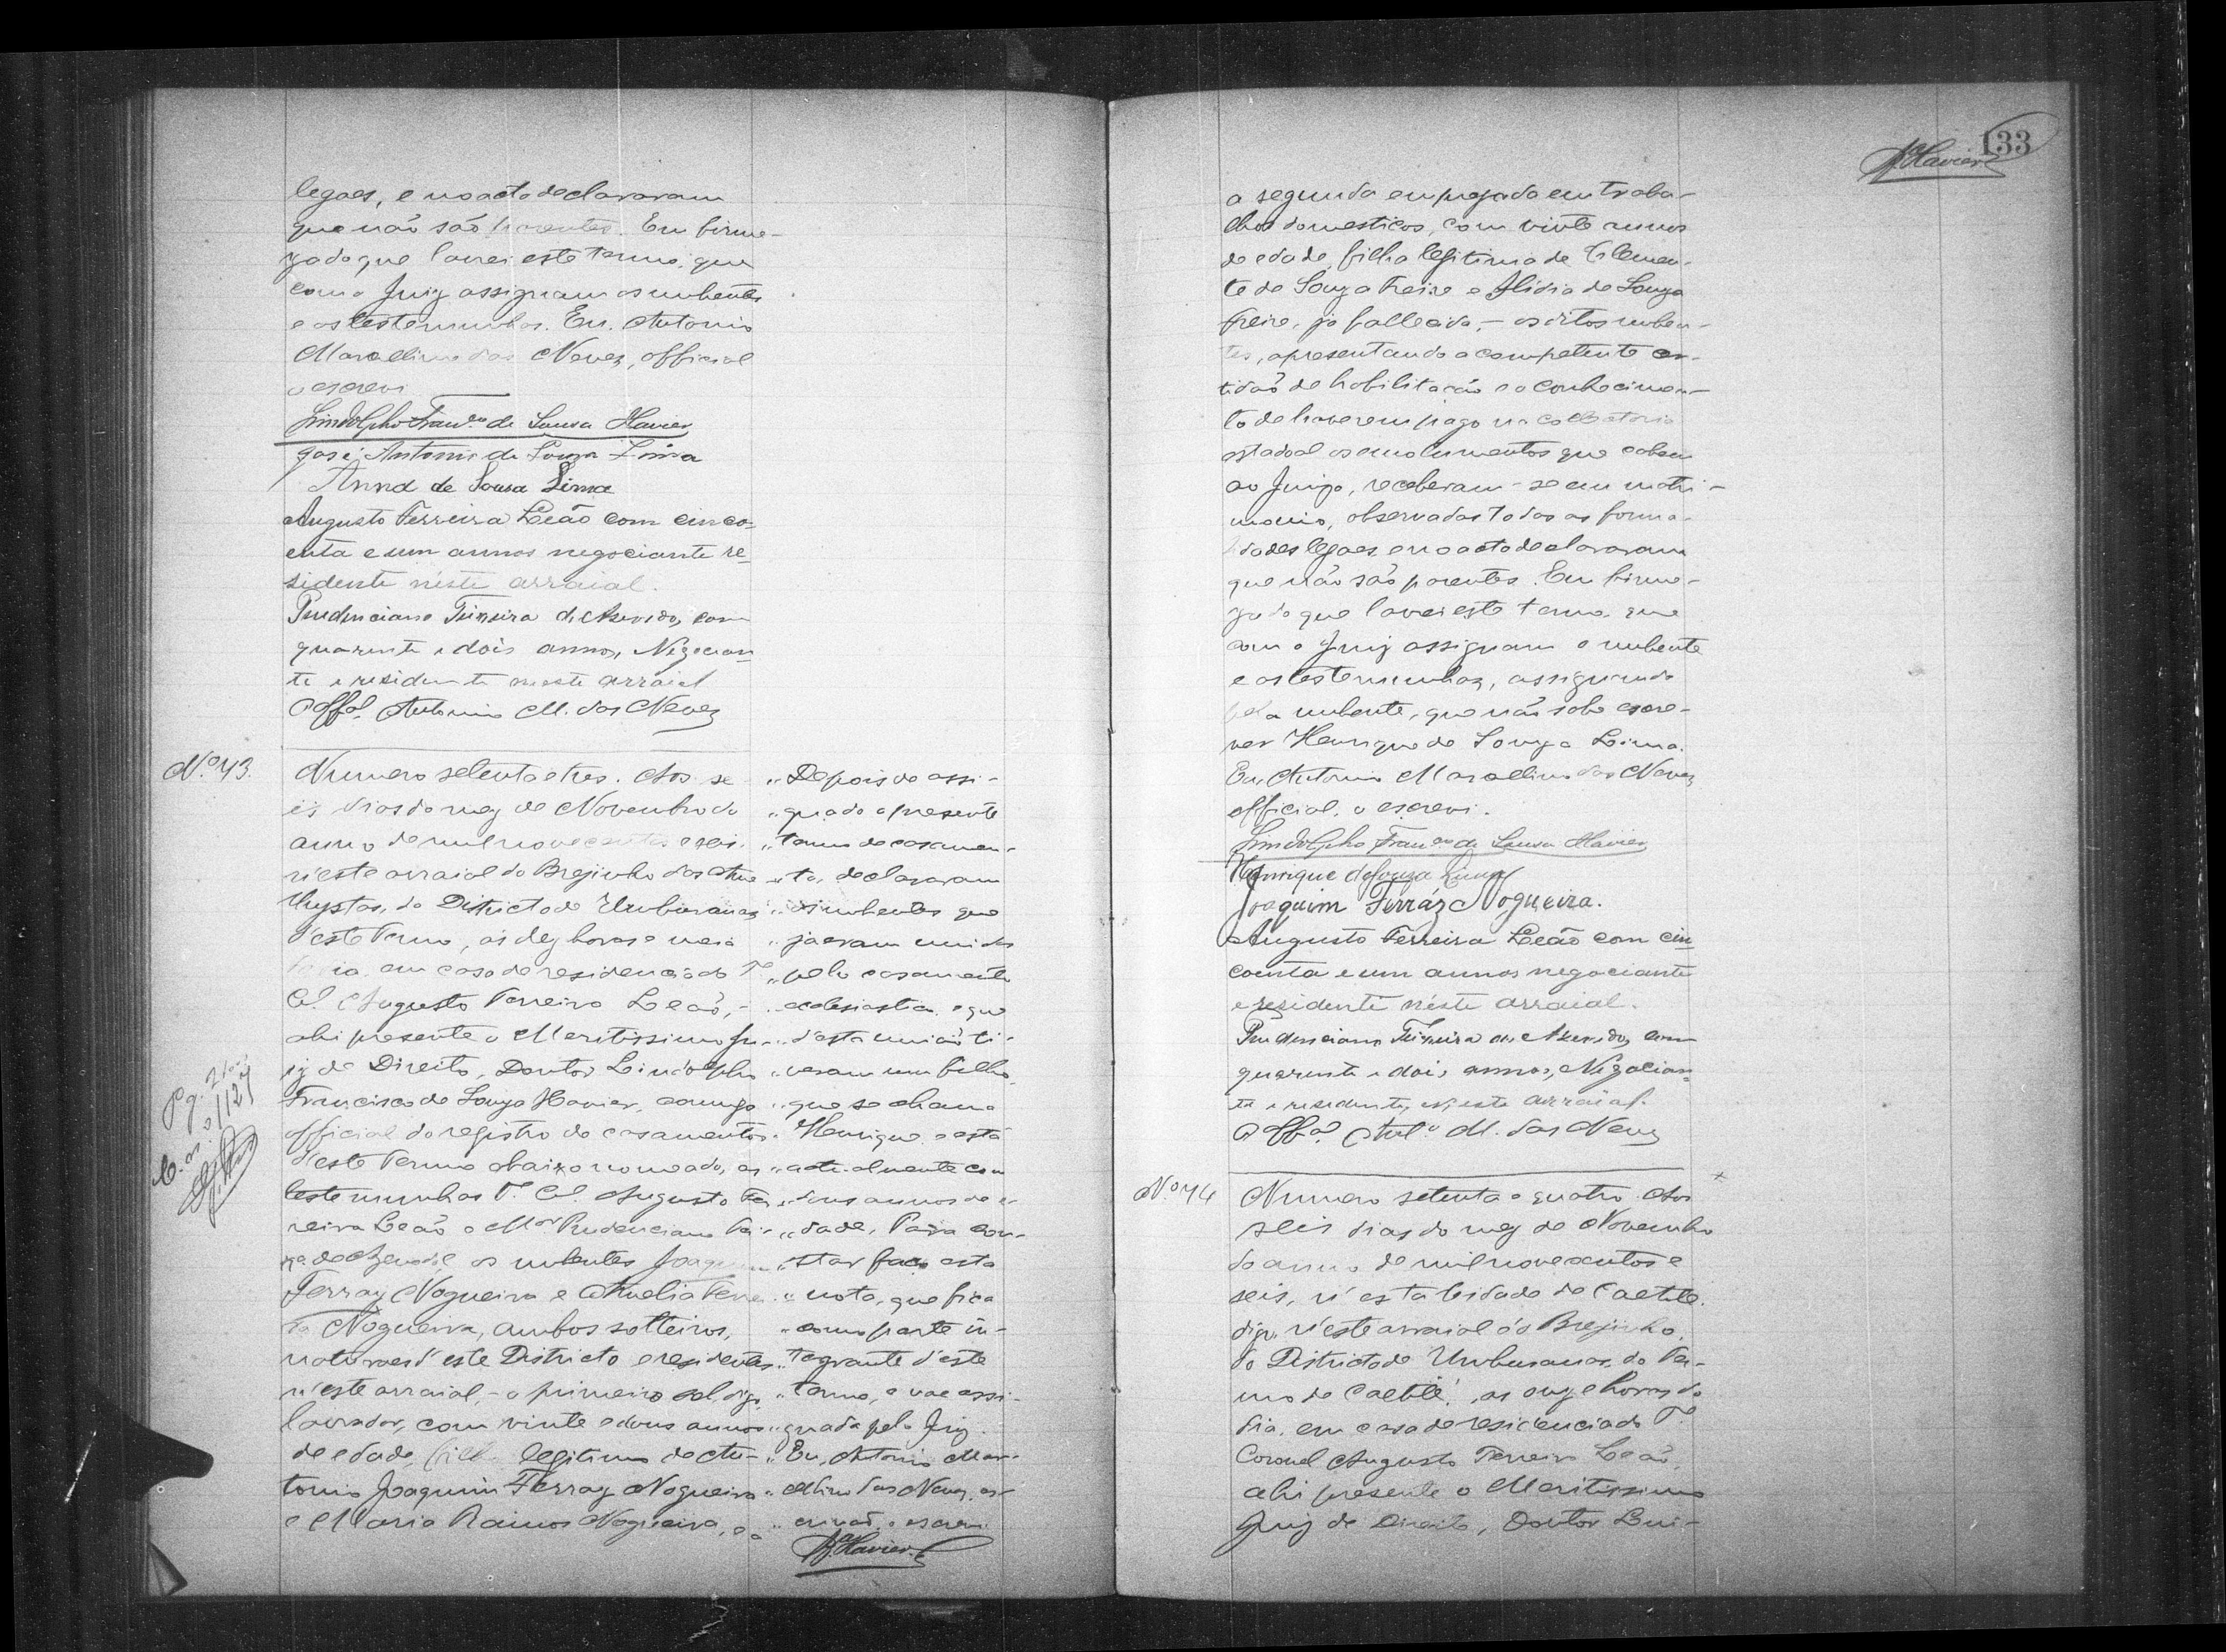 legaes, e no acto declararam
que não são parentes. Em firme-
za do que lavrei este termo, que
com o Juiz assignam os nubentes
e as testemunhas. Eu, Antonio
Marcellino das Neves, official
o escrevi
Lindolpho Franco de Sousa Xavier
José Antonio de Souza Lima
Anna de Sousa Lima
Augusto Ferreira Leão com cinco-
enta e um annos negociante re-
sidente néste arraial.
Prudenciano Teixeira de Asevedo, com
quarenta e dois annos, Negocian-
te e residente neste arraial
O Offal. Antonio M. das Neves
Nº 73.
Numero setenta e tres. Aos se-
is dias do mez de Novembro do
anno de mil novecentos e seis
n'este arraial do Brejinho das Ame-
thystas, do Districto de Umburanas
d'este Termo, ás dez horas e meia
em casa de residencia do Te
Cel. Augusto Ferreira Leão,-
ahi presente o Meritissimo Ju-
iz de Direito, Doutor Lindolpho
Francisco de Souza Xavier, comigo
official do registro de casamentos
d'este Termo abaixo nomeado, as
testemunhas Te. Cel. Augusto Fer-
reira Leão e Mor Prudenciano Tei-
xa. de Azevedo, os nubentes Joaquim
Ferraz Nogueira e Amelia Ferra
Nogueira, ambos solteiros,
naturaes d'este Districto e residentes
n'este arraial,- o primeiro sol, digo,
lavrador, com vinte e dous annos
de edade, filho legitimo de An-
tonio Joaquim Ferraz Nogueira
e Maria Ramos Nogueira, e a
Pg.
"Depois de assi-
"gnado o presente
"termo de casamen-
"to, declararam
"os nubentes que
"ja eram unidos
"pelo casamento
"ecclesiastico e que
"d'esta união ti-
"veram um filho,
"que se chama
"Henrique e está
"actualmente com
"dous annos de e-
"dade. Para con-
"star faço esta
"nota, que fica
"como parte in-
"tegrante d'este
"termo, e vae assi-
"gnada pelo Juiz.
"Eu, Antonio Mar-
"cellino das Neves, es-
"crivão, o escrevi
Xavier
133
Xavier
a segunda empregada em traba-
lhos domesticos, com vinte annos
de edade, filha legitima de Clemen-
te de Souza Freire e Ilidia de Souza
Freire, já fallecida,- os ditos nuben-
tes, apresentando a competente cer-
tidão de habilitação e o conhecimen-
to de haverem pago na collectoria
estadoal os emolumentos que cabem
ao Juizo, receberam-se em matri-
monio, observadas todas as forma-
lidades legaes e no acto declararam
que não são parentes. Em firme-
za do que lavrei este termo, que
com o Juiz assignam o nubente
e as testemunhas, assignando
pela nubente, que não sabe escre-
ver Henrique de Souza Lima.
Eu, Antonio Marcellino das Neves
official, o escrevi.
Lindolpho Franco de Sousa Xavier
Henrique de Souza Lima
Joaquim Ferráz Nogueira.
Augusto Ferreira Leão com cin-
coenta e um annos negociante
e rezidente néste arraial.
Prudenciano Teixeira de Asevedo, com
quarenta e dois annos, Negocian-
te e residente, neste arraial.
O Offal. Anto. M. das Neves
Nº 74
Numero setenta e quatro. Aos
seis dias do mez de Novembro
do anno de mil novecentos e
seis, n'esta Cidade de Caetité.
digo, n'este arraial do Brejinho,
do Districto de Umburanas, do Ter-
mo de Caetité, as onze horas do
dia, em casa de residencia do Te.
Coronel Augusto Ferreira Leão,
ahi presente o Meritissimo
Juiz de Direito, Doutor Lin-